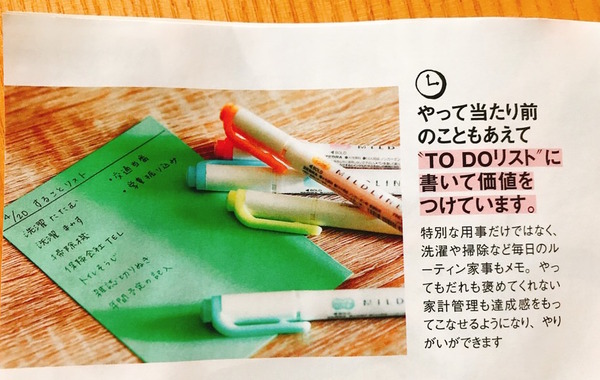 やって当たり前
のこともあえて
“TO DOリスト”に
書いて価値を
つけています。
特別な用事だけではなく、
洗濯や掃除など毎日のル
ーティン家事もメモ。やっ
てもだれも褒めてくれない
家計管理も達成感をもっ
てこなせるようになり、やり
がいができます
4/20 することリスト
洗濯たたむ
洗濯まわす
掃除機
保険会社TEL
トイレそうじ
雑誌切りぬき
年間予定の記入
・交通当番
・学費振り込み
MILD
LIN
MILD